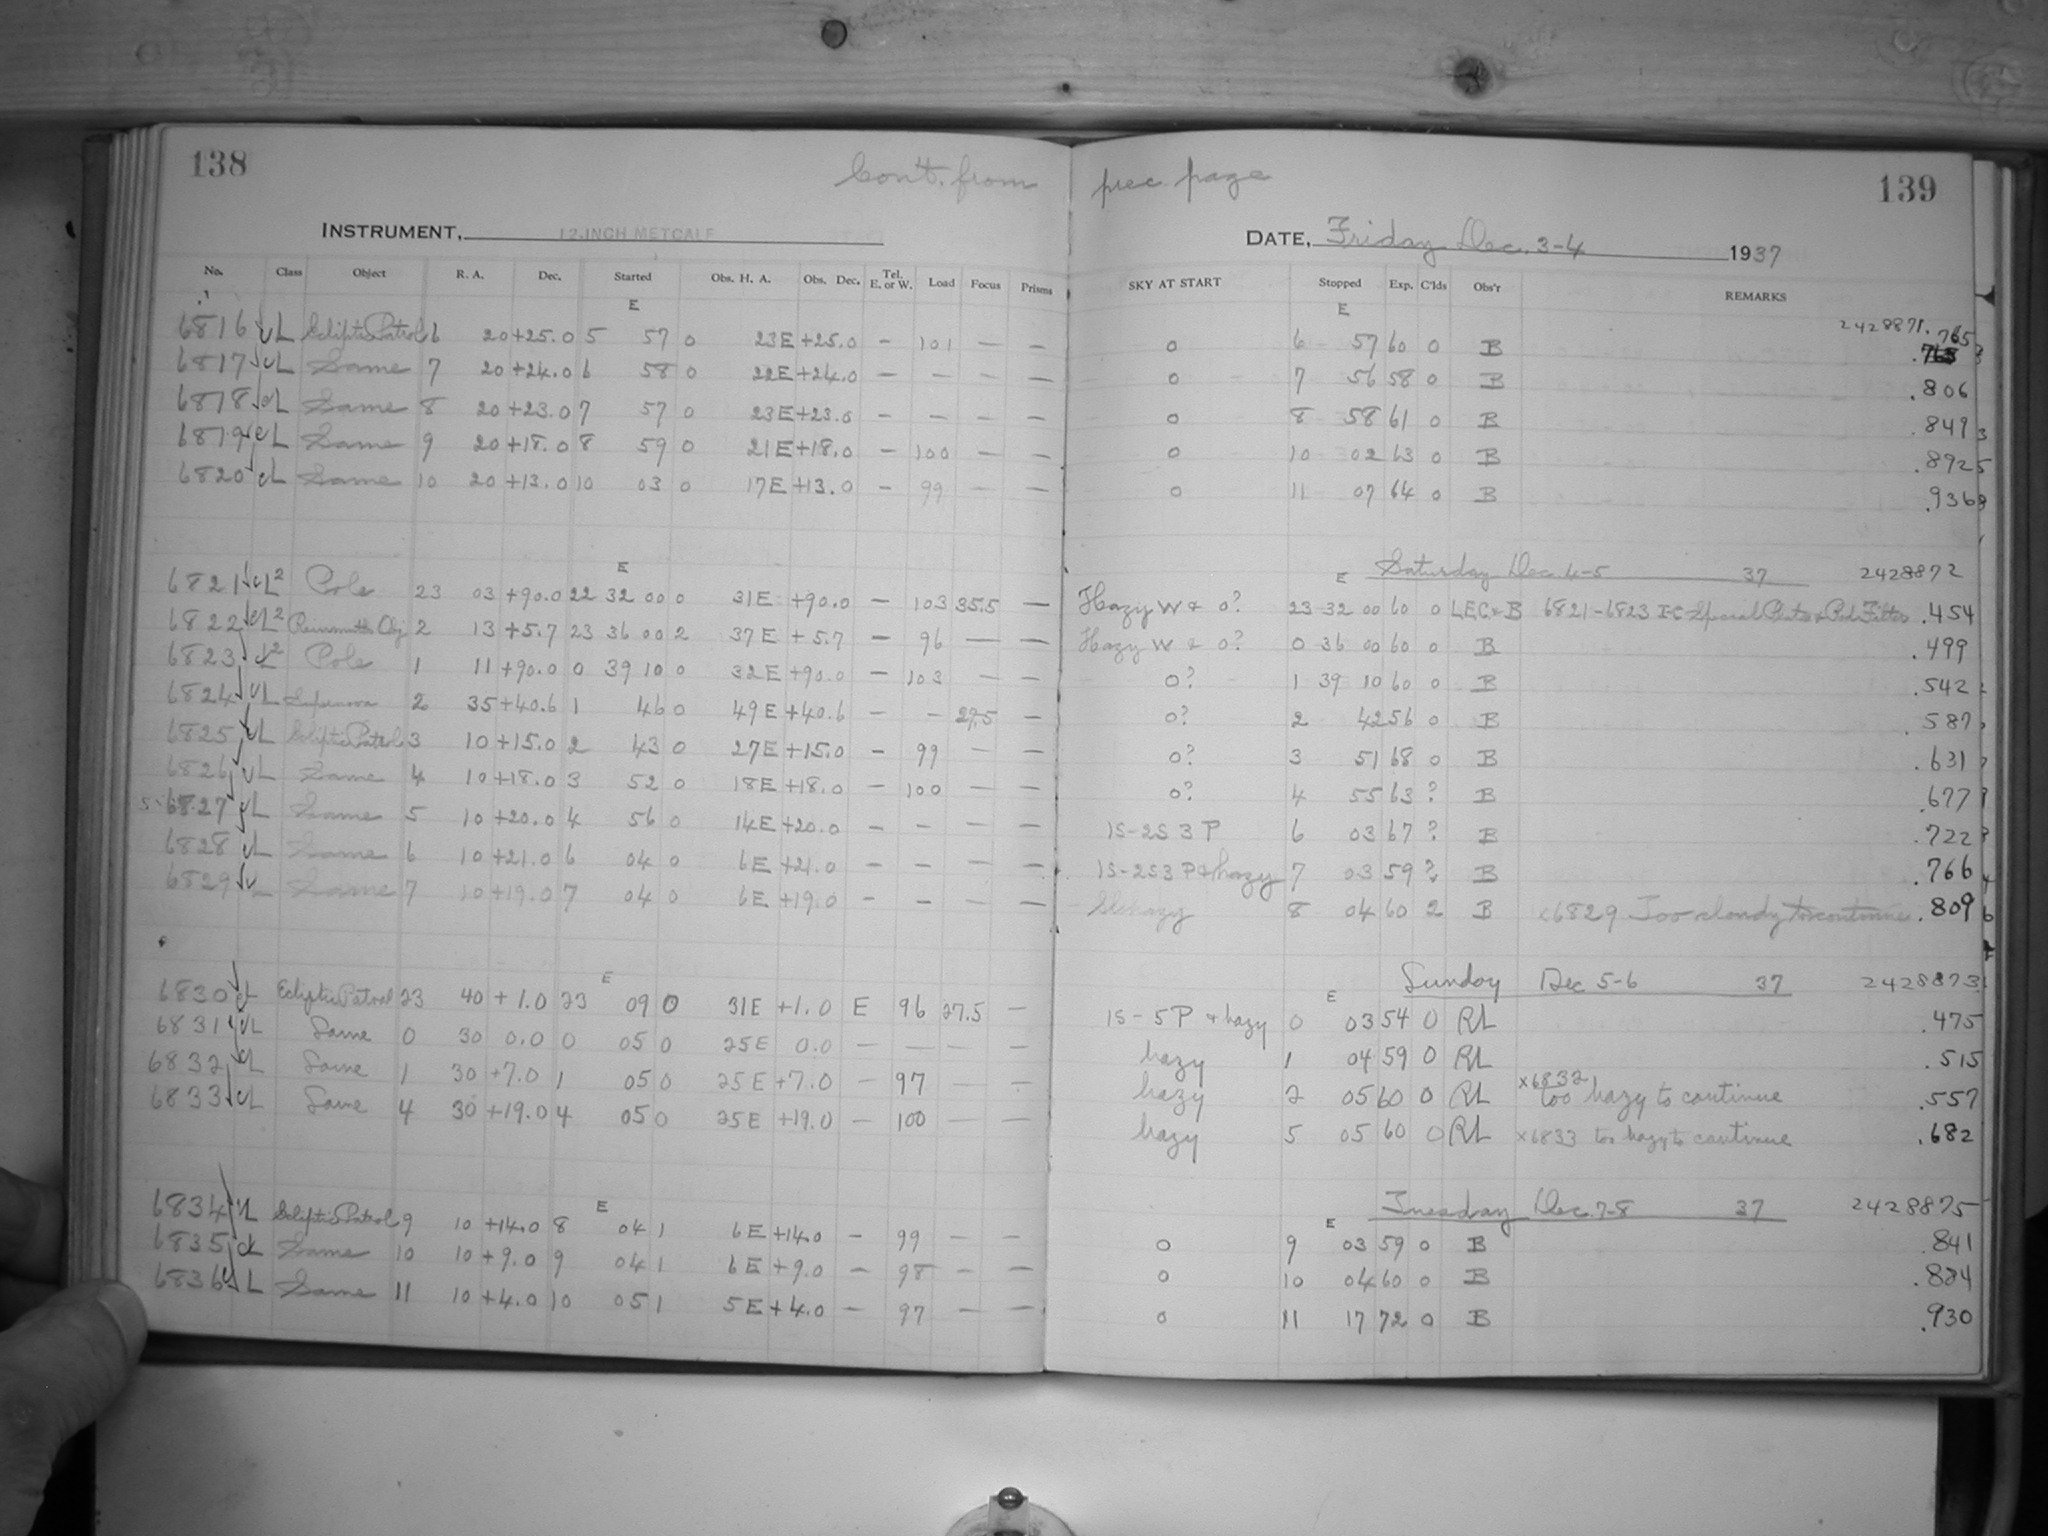 138 Cont. from prec. page 139
INSTRUMENT, 12-INCH METCALF DATE, Friday Dec. 3-4 1937
No. Class Object R. A. Dec. Started Obs. H. A. Obs. Dec. Tel. E. or W. Load Focus Prisms SKY AT START Stopped Exp. C'lds Obs'r REMARKS
E E 2428871.
6816 L Ecliptic Patrol 6 20 +25.0 5 57 0 23E +25.0 – 101 – – 0 6 57 60 0 B .765
6817 L Same 7 20 +24.0 6 58 0 22E +24.0 – – – – 0 7 56 58 0 B .806
6818 L Same 8 20 +23.0 7 57 0 23E +23.0 – – – – 0 8 58 61 0 B .849
6819 L Same 9 20 +18.0 8 59 0 21E +18.0 – 100 – – 0 10 02 63 0 B .892
6820 L Same 10 20 +13.0 10 03 0 17E +13.0 – 99 – – 0 11 07 64 0 B .936
E E Saturday Dec. 4-5 37 2428872
6821 L2 Pole 23 03 +90.0 22 32 00 0 31E +90.0 – 103 35.5 – Hazy W & 0? 23 32 00 60 0 LEC & B 6821-6823 I-C Special Plates & Red Filter .454
6822 L2 Obj 2 13 +5.7 23 36 00 2 37E +5.7 – 96 – – Hazy W & 0? 0 36 00 60 0 B .499
6823 2 Pole 1 11 +90.0 0 39 10 0 32E +90.0 – 103 – – 0? 1 39 10 60 0 B .542
6824 L Supernova 2 35 +40.6 1 46 0 49E +40.6 – – 27.5 – 0? 2 42 56 0 B .587
6825 L Ecliptic Patrol 3 10 +15.0 2 43 0 27E +15.0 – 99 – – 0? 3 51 68 0 B .631
6826 L Same 4 10 +18.0 3 52 0 18E +18.0 – 100 – – 0? 4 55 63 ? B .677
6827 L Same 5 10 +20.0 4 56 0 14E +20.0 – – – – 1S-2S 3 P 6 03 67 ? B .722
6828 L Same 6 10 +21.0 6 04 0 6E +21.0 – – – – 1S-2S3 P & hazy 7 03 59 ? B .766
6829 Same 7 10 +19.0 7 04 0 6E +19.0 – – – – hazy 8 04 60 2 B x6829 Too cloudy to continue .809
E E Sunday Dec 5-6 37 2428873
6830 L Ecliptic Patrol 23 40 +1.0 23 09 0 31E +1.0 E 96 27.5 – 1S-5P & hazy 0 03 54 0 RL .475
6831 L Same 0 30 0.0 0 05 0 25E 0.0 – – – – hazy 1 04 59 0 RL .515
6832 L Same 1 30 +7.0 1 05 0 25E +7.0 – 97 – – hazy 2 05 60 0 RL x6832 too hazy to continue .557
6833 L Same 4 30 +19.0 4 05 0 25E +19.0 – 100 – – hazy 5 05 60 0 RL x6833 too hazy to continue .682
E E Tuesday Dec. 7-8 37 2428875
6834 L Ecliptic Patrol 9 10 +14.0 8 04 1 6E +14.0 – 99 – – 0 9 03 59 0 B .841
6835 L Same 10 10 +9.0 9 04 1 6E +9.0 – 98 – – 0 10 04 60 0 B .884
6836 L Same 11 10 +4.0 10 05 1 5E +4.0 – 97 – – 0 11 17 72 0 B .930